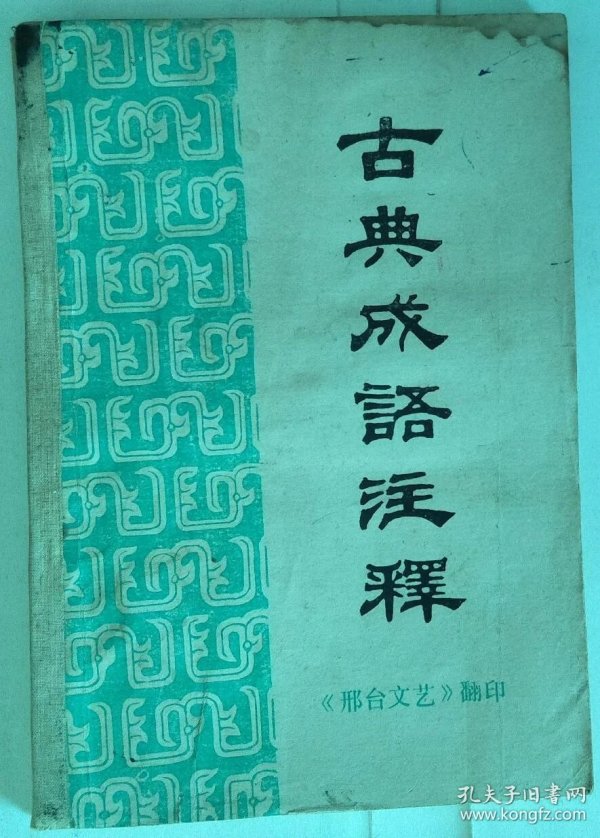 古典成語注釋
《邢台文艺》翻印
孔夫子旧书网
www.kongfz.com